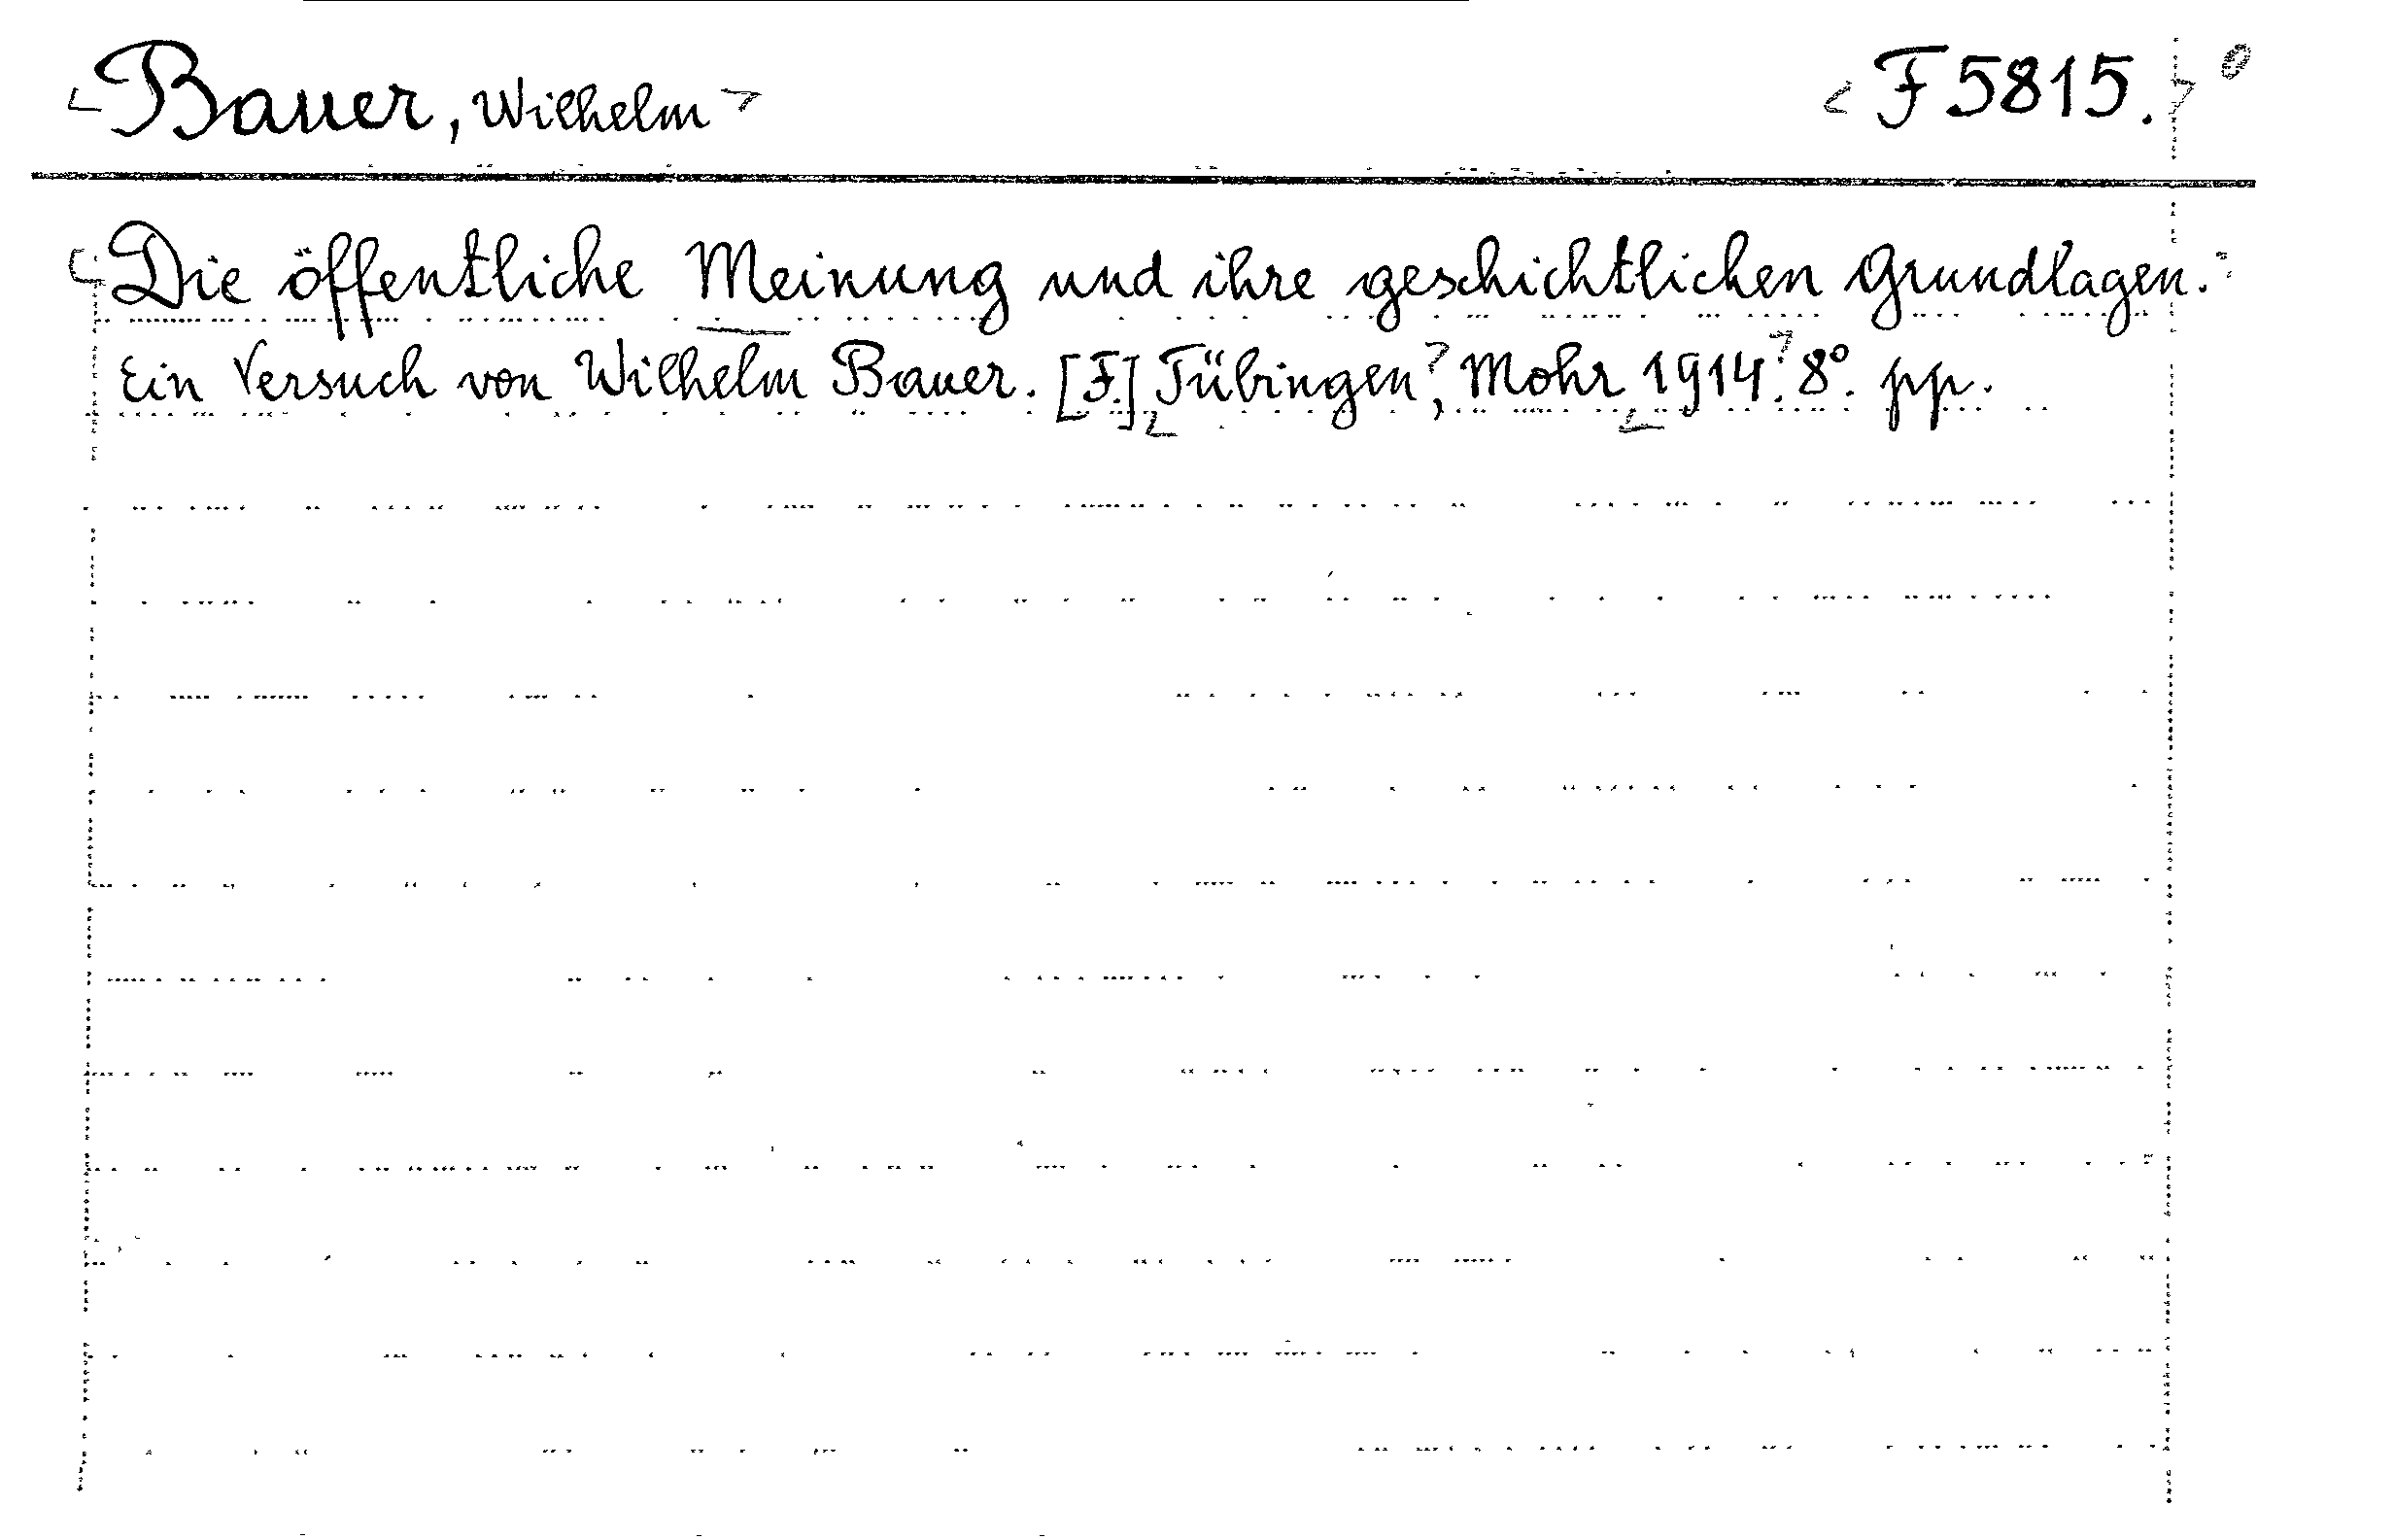 Bauer, Wilhelm
F 5815.
Die öffentliche Meinung und ihre geschichtlichen Grundlagen.
Ein Versuch von Wilhelm Bauer. [F.] Tübingen, Mohr 1914. 8°. pp.